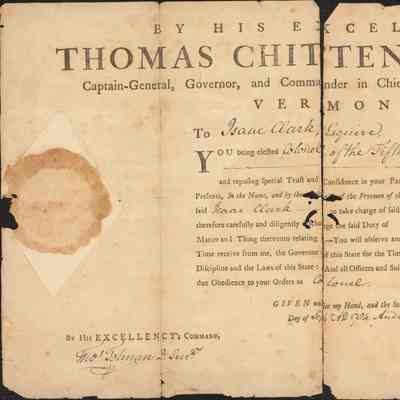 BY HIS EXCEL
THOMAS CHITTEN
Captain-General, Governor, and Commander in Chie
VERMON
To Isaac Clark, Esquire,
YOU being elected Colonel of the Fifth
and reposing special Trust and Confidence in your Pat
Presents, In the Name, and by the of the Freemen of the
said Isaac Clark to take charge of said
therefore carefully and diligently the said Duty of
Matter and Thing thereunto relating.—You will observe and
Time receive from me, the Governor of this State for the Time
Discipline and the Laws of this State: And all Officers and Sol
that Obedience to your Orders as Colonel.
GIVEN under my Hand, and the S
Day of AD 1794. And
By His EXCELLENCY's Command,
Thos. Tolman